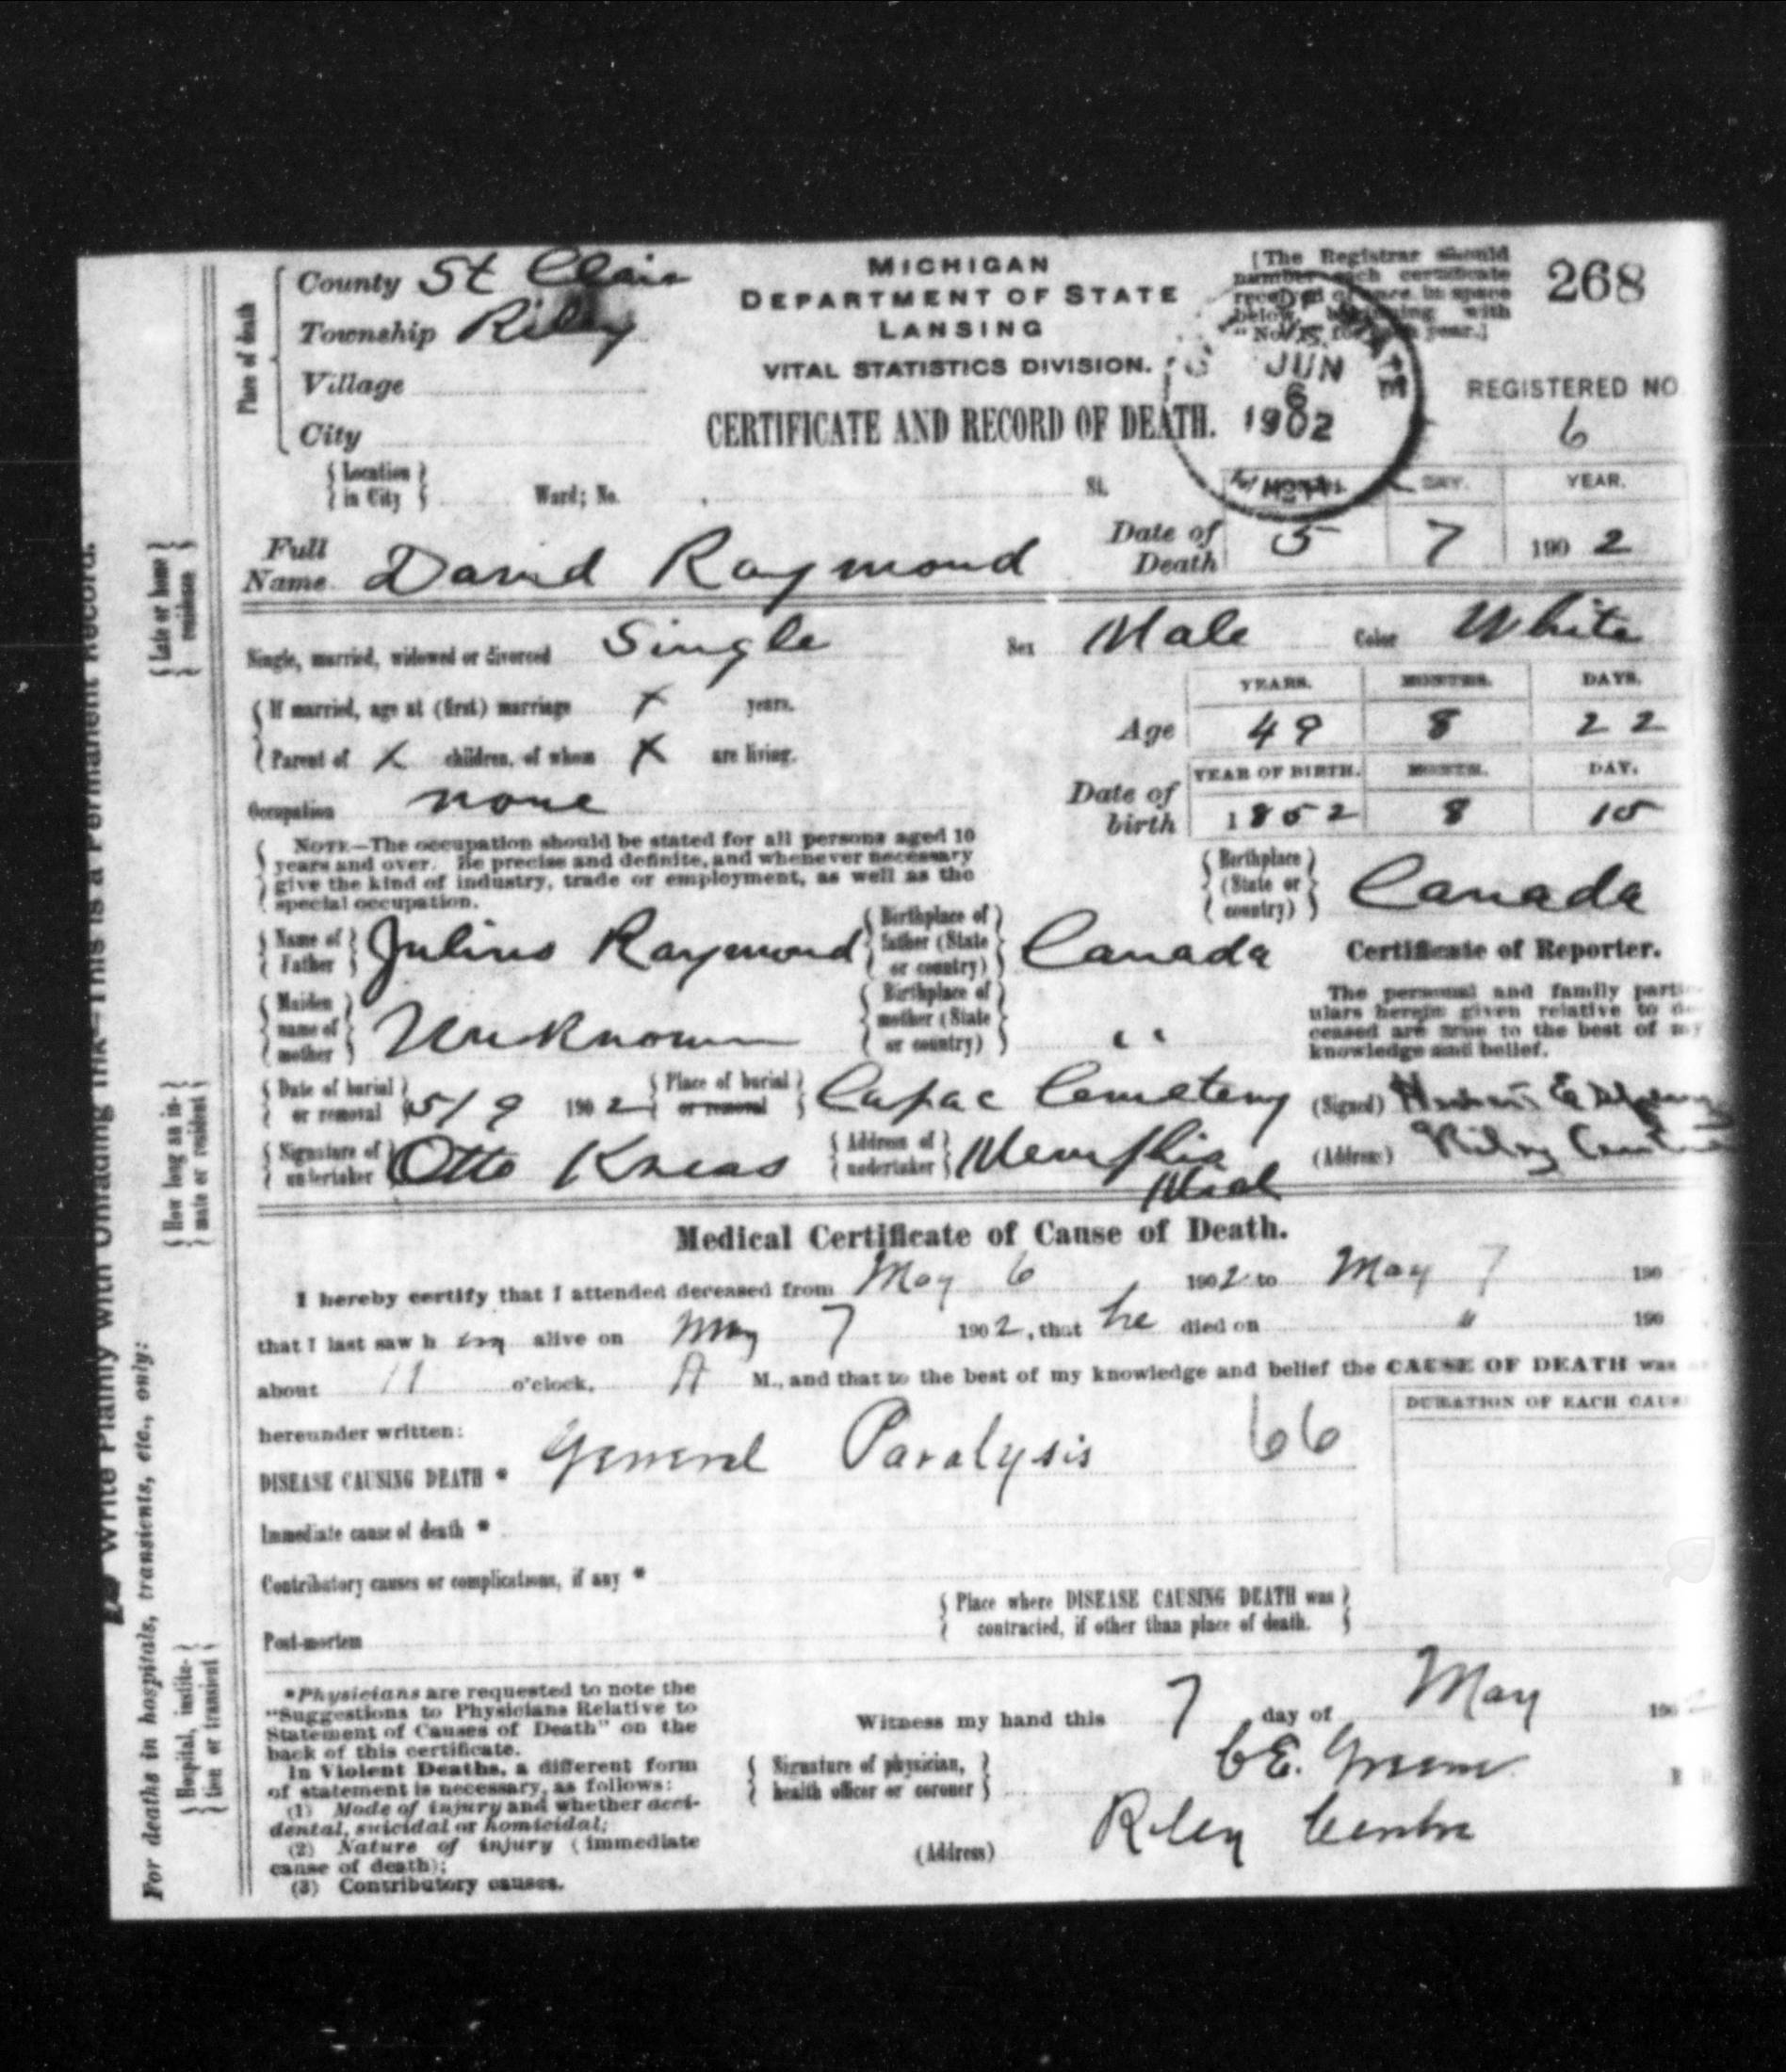 County St Clair
Township Riley
Village
City
Place of death
MICHIGAN
DEPARTMENT OF STATE
LANSING
VITAL STATISTICS DIVISION.
CERTIFICATE AND RECORD OF DEATH.
[The Registrar should
number each certificate
received once in space
below, beginning with
"No. for each year.]
268
JUN
6
1902
REGISTERED NO
6
{Location in City} Ward; No. St.
MONTH. DAY. YEAR.
Full Name David Raymond Date of Death 5 7 1902
Single, married, widowed or divorced Single Sex Male Color White
{If married, age at (first) marriage X years.
{Parent of X children, of whom X are living.
YEARS. MONTHS. DAYS.
Age 49 8 22
Occupation none
YEAR OF BIRTH. MONTH. DAY.
Date of birth 1852 8 15
NOTE—The occupation should be stated for all persons aged 10
years and over. Be precise and definite, and whenever necessary
give the kind of industry, trade or employment, as well as the
special occupation.
{Birthplace (State or country)} Canada
{Name of Father} Julius Raymond {Birthplace of father (State or country)} Canada
{Maiden name of mother} Unknown {Birthplace of mother (State or country)} "
Certificate of Reporter.
The personal and family parti-
ulars herein given relative to de-
ceased are true to the best of my
knowledge and belief.
{Date of burial or removal} 5/9 1902 {Place of burial or removal} Capac Cemetery (Signed)
{Signature of undertaker} Otto Kneas {Address of undertaker} Memphis Mich (Address) Riley Centre
Medical Certificate of Cause of Death.
I hereby certify that I attended deceased from May 6 1902 to May 7 190
that I last saw h im alive on May 7 1902, that he died on " 190
about 11 o'clock, A M., and that to the best of my knowledge and belief the CAUSE OF DEATH was
hereunder written:
DURATION OF EACH CAUS
DISEASE CAUSING DEATH * General Paralysis 66
Immediate cause of death *
Contributory causes or complications, if any *
{Place where DISEASE CAUSING DEATH was contracted, if other than place of death.}
Post-mortem
*Physicians are requested to note the
"Suggestions to Physicians Relative to
Statement of Causes of Death" on the
back of this certificate.
In Violent Deaths, a different form
of statement is necessary, as follows:
(1) Mode of injury and whether acci-
dental, suicidal or homicidal;
(2) Nature of injury (immediate
cause of death);
(3) Contributory causes.
Witness my hand this 7 day of May 190
{Signature of physician, health officer or coroner} C E. Greene
(Address) Riley Centre
Write Plainly with Unfading Ink—This is a Permanent Record.
For deaths in hospitals, transients, etc., only:
{Hospital, institution or transient}
{How long an inmate or resident}
{Late or home residence}